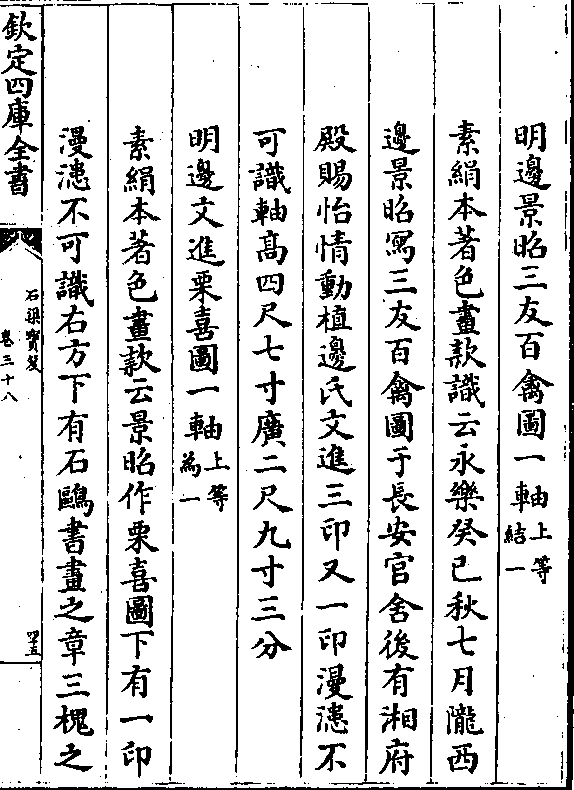 明邊景昭三友百禽圖一軸上等結一
素絹本著色畫款識云永樂癸巳秋七月隴西
邊景昭寫三友百禽圖于長安官舍後有湘府
殿賜怡情動植邊氏文進三印又一印漫漶不
可識軸髙四尺七寸廣二尺九寸三分
明邊文進栗喜圖一軸上等為一
素絹本著色畫款云景昭作栗喜圖下有一印
漫漶不可識右方下有石鷗書畫之章三槐之
欽定四庫全書
石渠寳笈
卷三十八
四五